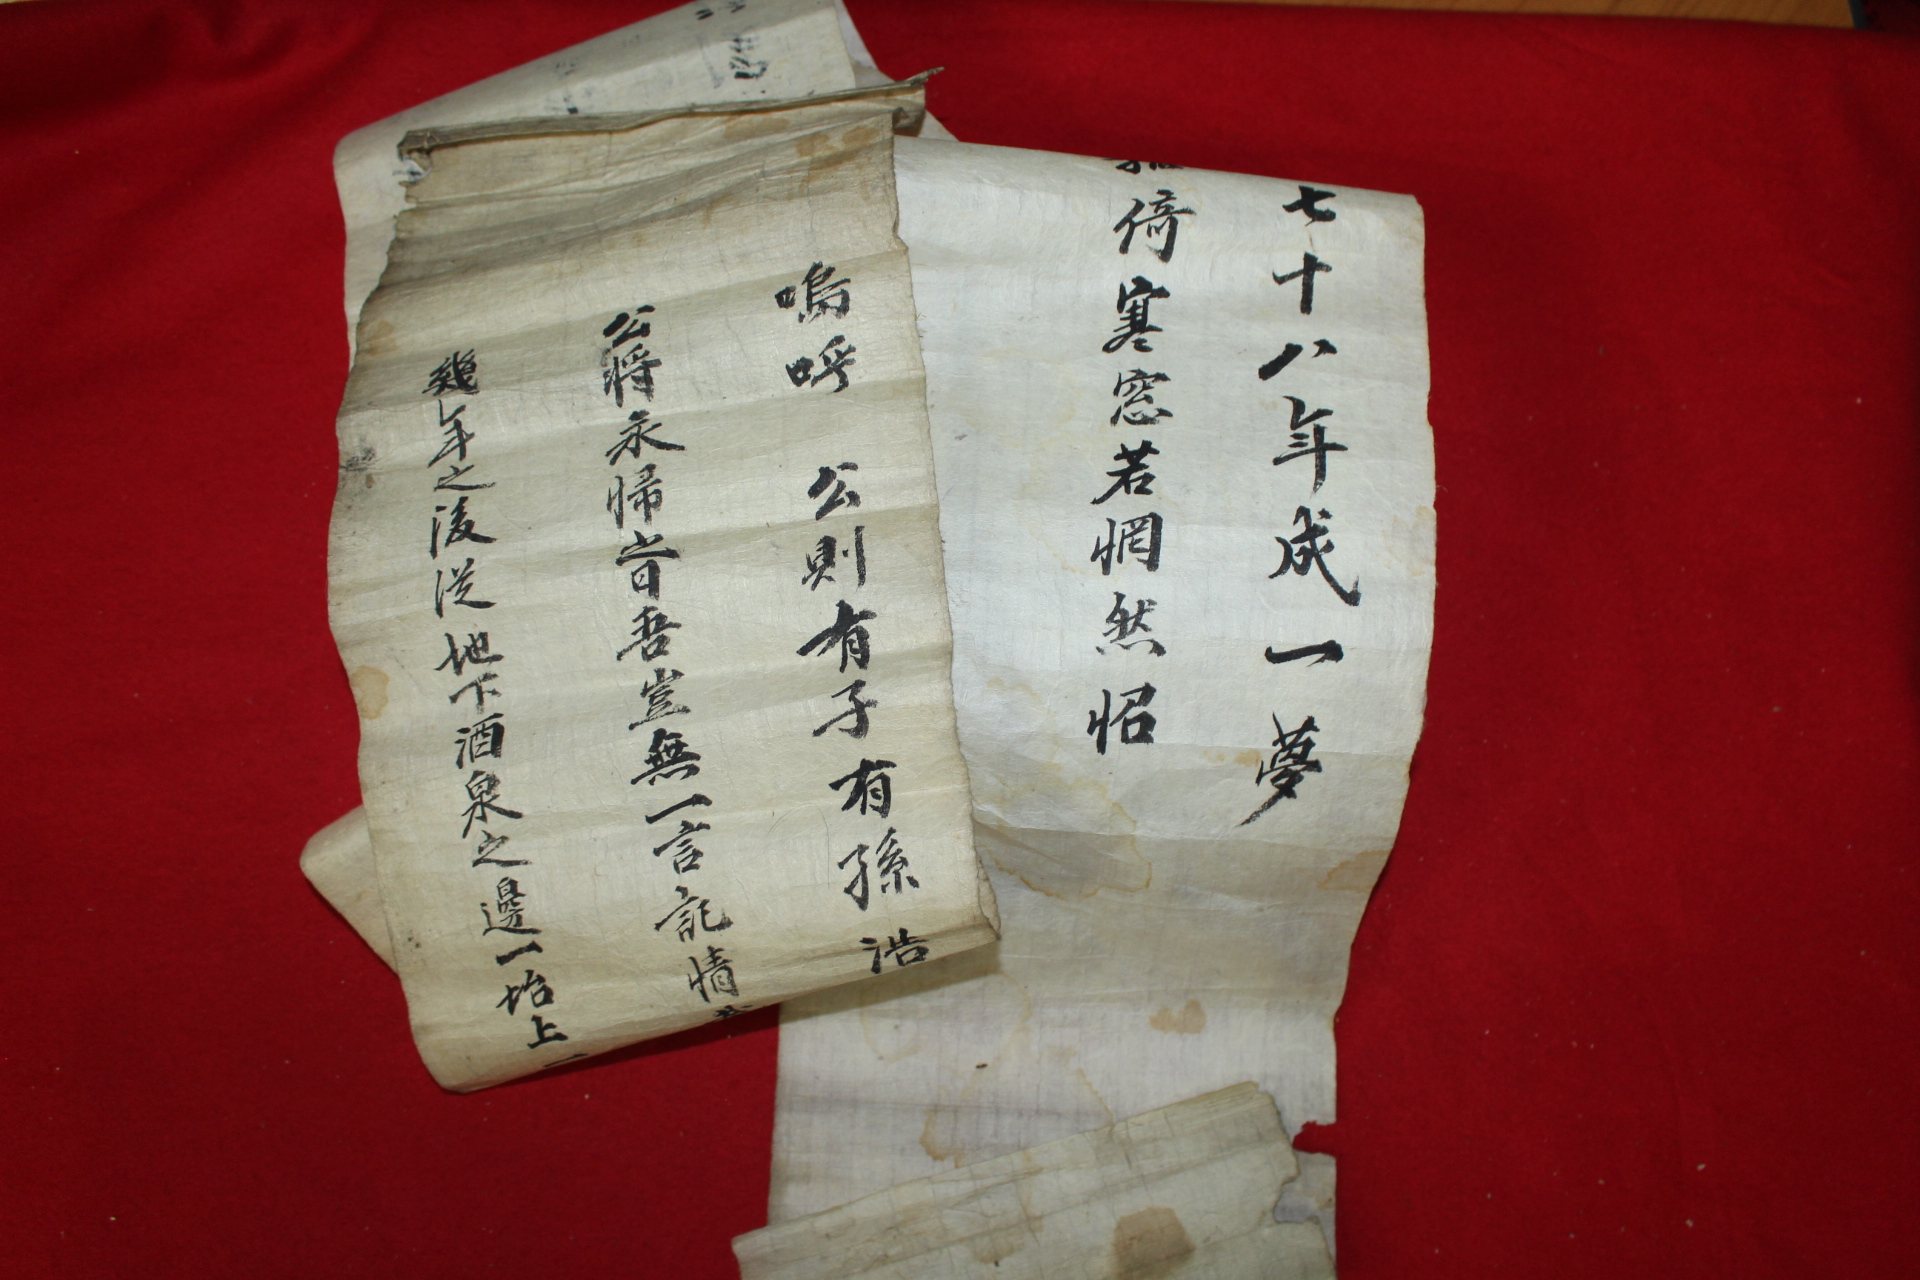 七十八年成一夢
倚寒窓若惘然怊
嗚呼 公則有子有孫浩
公將永帰昔吾豈無一言記情
幾年之後从地下酒泉之邊一抬上